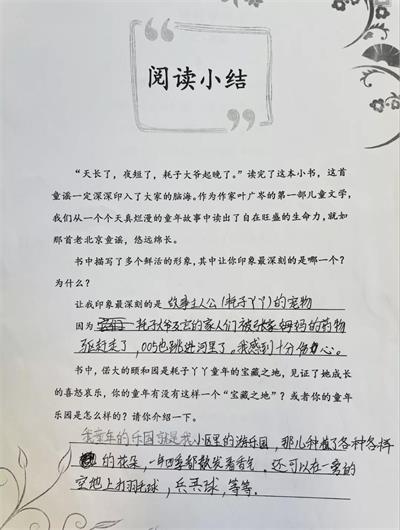 阅读小结
“天长了，夜短了，耗子大爷起晚了。”读完了这本小书，这首
童谣一定深深印入了大家的脑海。作为作家叶广岑的第一部儿童文学，
我们从一个个天真烂漫的童年故事中读出了自在旺盛的生命力，就如
那首老北京童谣，悠远绵长。
书中描写了多个鲜活的形象，其中让你印象最深刻的是哪一个？
为什么？
让我印象最深刻的是 故事主人公(耗子丫丫)的宠物
因为 耗子大爷及它的家人们被张家妈妈的药物
驱赶走了，005也跳进河里了。我感到十分伤心。
书中，偌大的颐和园是耗子丫丫童年的宝藏之地，见证了她成长
的喜怒哀乐，你的童年有没有这样一个“宝藏之地”？或者你的童年
乐园是怎么样的？请你介绍一下。
我童年的乐园就是我小区里的游乐园，那儿种植了各种各样
的花朵，一年四季都散发着香气。还可以在一旁的
空地上打羽毛球，乒乓球，等等.